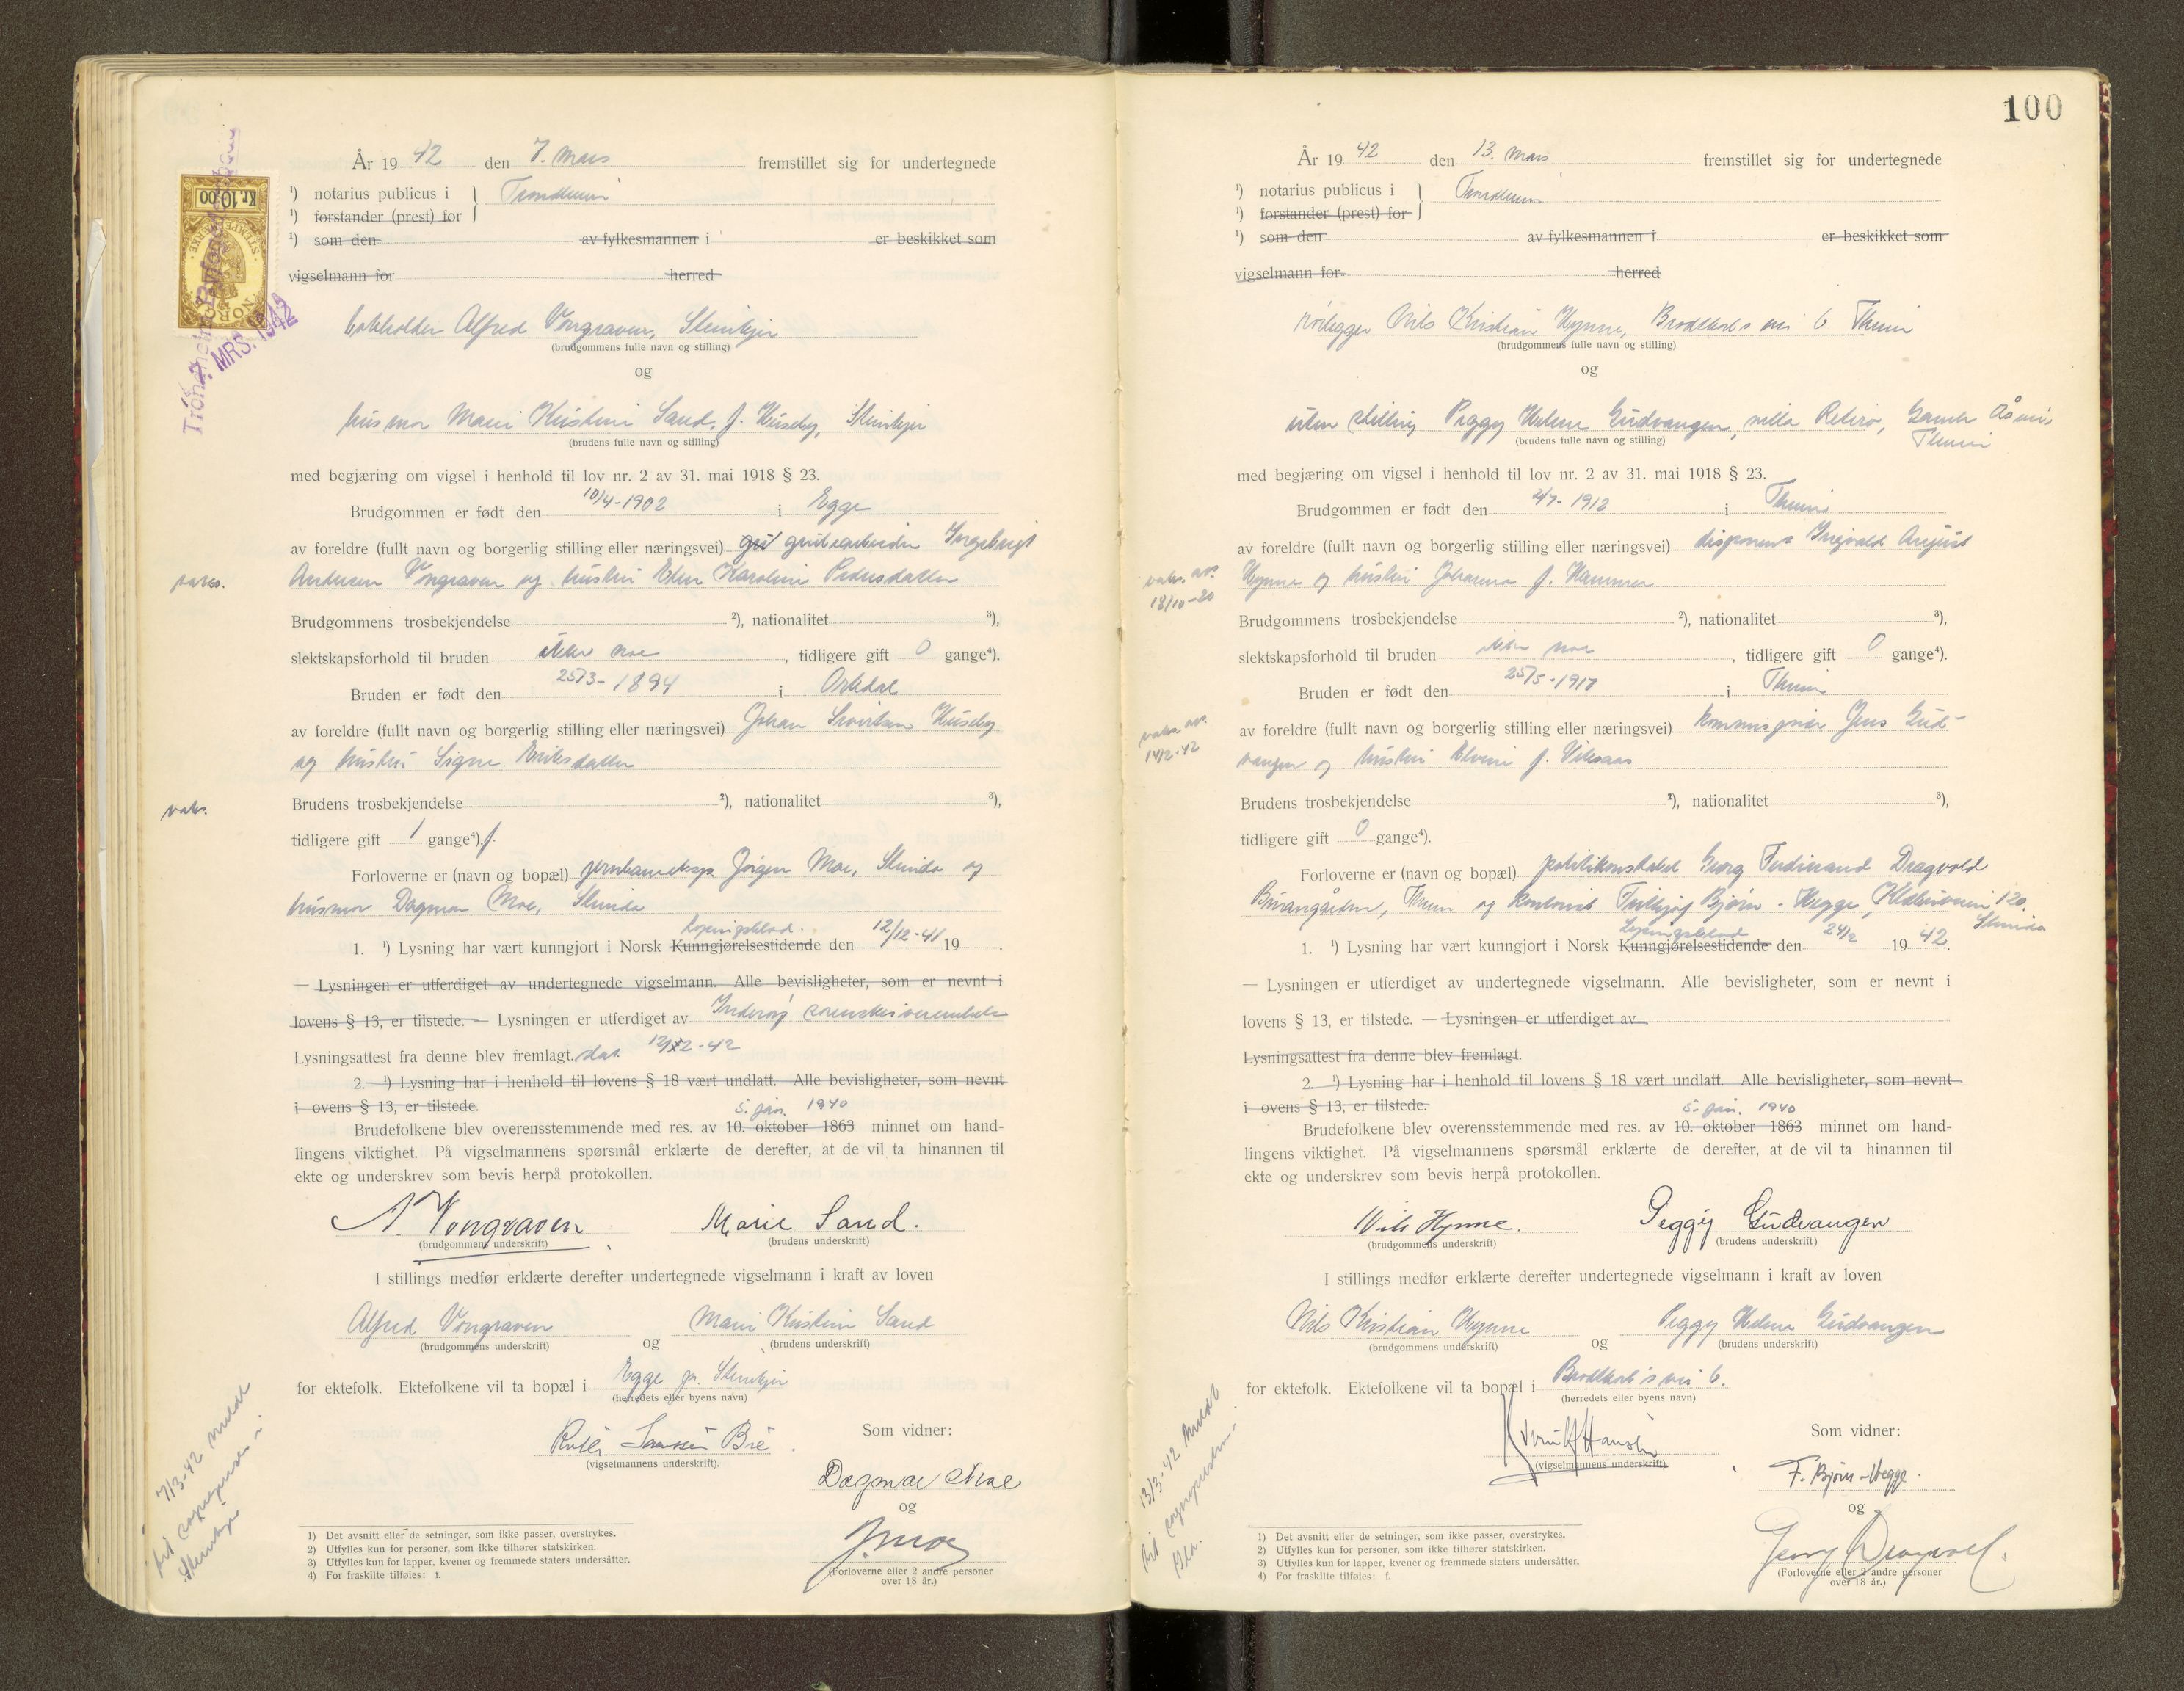 År 19 42 den 7. mars fremstillet sig for undertegnede
¹) notarius publicus i } Trondheim
¹) forstander (prest) for
¹) som den av fylkesmannen i er beskikket som
vigselmann for herred
Kr. 10.00
STEMPELMERKE
NORGE
7. MRS. 1942
bokholder Alfred Vongraven, Steinkjer
(brudgommens fulle navn og stilling)
og
husmor Marie Kristine Sand, f. Huseby, Steinkjer
(brudens fulle navn og stilling)
med begjæring om vigsel i henhold til lov nr. 2 av 31. mai 1918 § 23.
Brudgommen er født den 10/4-1902 i Egge
av foreldre (fullt navn og borgerlig stilling eller næringsvei) grubearbeider Ingebrigt
Andersen Vongraven og hustru Elen Karoline Pedersdatter
Brudgommens trosbekjendelse ²), nationalitet ³),
slektskapsforhold til bruden ikke noe, tidligere gift 0 gange⁴).
Bruden er født den 25/3-1894 i Orkdal
av foreldre (fullt navn og borgerlig stilling eller næringsvei) Johan Sivertsen Huseby
og hustru Signe Eriksdatter
vaks.
Brudens trosbekjendelse ²), nationalitet ³),
tidligere gift 1 gange⁴). f.
Forloverne er (navn og bopæl) Jørgen Moe, Strinda og
husmor Dagmar Moe, Strinda
lysingsblad.
1. ¹) Lysning har vært kunngjort i Norsk Kunngjørelsestidende den 12/12-41 19 .
— Lysningen er utferdiget av undertegnede vigselmann. Alle bevisligheter, som er nevnt i
lovens § 13, er tilstede. — Lysningen er utferdiget av Inderøy sorenskriverembete
Lysningsattest fra denne blev fremlagt. dat. 12/2-42
2. ¹) Lysning har i henhold til lovens § 18 vært undlatt. Alle bevisligheter, som nevnt
i ovens § 13, er tilstede.
5. jan. 1940
Brudefolkene blev overensstemmende med res. av 10. oktober 1863 minnet om hand-
lingens viktighet. På vigselmannens spørsmål erklærte de derefter, at de vil ta hinannen til
ekte og underskrev som bevis herpå protokollen.
A. Vongraven Marie Sand.
(brudgommens underskrift) (brudens underskrift)
I stillings medfør erklærte derefter undertegnede vigselmann i kraft av loven
Alfred Vongraven og Marie Kristine Sand
(brudgommens underskrift) (brudens underskrift)
for ektefolk. Ektefolkene vil ta bopæl i Egge pr. Steinkjer
(herredets eller byens navn)
Som vidner:
(vigselmannens underskrift).
Dagmar Moe
og
J. Moe
(Forloverne eller 2 andre personer
over 18 år.)
7/3-42 meldt
til sognepresten i
Steinkjer
1) Det avsnitt eller de setninger, som ikke passer, overstrykes.
2) Utfylles kun for personer, som ikke tilhører statskirken.
3) Utfylles kun for lapper, kvener og fremmede staters undersåtter.
4) For fraskilte tilføies: f.
100
År 19 42 den 13. mars fremstillet sig for undertegnede
¹) notarius publicus i } Trondheim
¹) forstander (prest) for
¹) som den av fylkesmannen i er beskikket som
vigselmann for herred
rørlegger Nils Kristian Hynne, Brodtkorbs vei 6 Theim
(brudgommens fulle navn og stilling)
og
uten stilling Peggy Helene Gudvangen, villa Retiro, Gamle Åsvei,
Theim
(brudens fulle navn og stilling)
med begjæring om vigsel i henhold til lov nr. 2 av 31. mai 1918 § 23.
Brudgommen er født den 2/7-1912 i Theim
av foreldre (fullt navn og borgerlig stilling eller næringsvei) disponent Ingvald August
Hynne og hustru Johanna f. Hammer
vaks. att.
18/10-20
Brudgommens trosbekjendelse ²), nationalitet ³),
slektskapsforhold til bruden ikke noe, tidligere gift 0 gange⁴).
Bruden er født den 25/5-1917 i Theim
av foreldre (fullt navn og borgerlig stilling eller næringsvei) Jens Gud-
vangen og hustru Elvine f. Viksaas
vaks. att.
14/2-42
Brudens trosbekjendelse ²), nationalitet ³),
tidligere gift 0 gange⁴).
Forloverne er (navn og bopæl) politikonstabel Georg Ferdinand Dragvold
Burangården, Theim og kontorist Fritkjof Bjørn-Hegge, 120.
Strinda
Lysingsblad
1. ¹) Lysning har vært kunngjort i Norsk Kunngjørelsestidende den 24/2 19 42.
— Lysningen er utferdiget av undertegnede vigselmann. Alle bevisligheter, som er nevnt i
lovens § 13, er tilstede. — Lysningen er utferdiget av
Lysningsattest fra denne blev fremlagt.
2. ¹) Lysning har i henhold til lovens § 18 vært undlatt. Alle bevisligheter, som nevnt
i ovens § 13, er tilstede.
5. jan. 1940
Brudefolkene blev overensstemmende med res. av 10. oktober 1863 minnet om hand-
lingens viktighet. På vigselmannens spørsmål erklærte de derefter, at de vil ta hinannen til
ekte og underskrev som bevis herpå protokollen.
Nils Hynne. Peggy Gudvangen
(brudgommens underskrift) (brudens underskrift)
I stillings medfør erklærte derefter undertegnede vigselmann i kraft av loven
Nils Kristian Hynne og Peggy Helene Gudvangen
(brudgommens underskrift) (brudens underskrift)
for ektefolk. Ektefolkene vil ta bopæl i Brodtkorb's vei 6.
(herredets eller byens navn)
Som vidner:
(vigselmannens underskrift)
F. Bjørn-Hegge.
og
Georg Dragvold.
(Forloverne eller 2 andre personer
over 18 år.)
13/3-42 meldt
til sognepresten i
1) Det avsnitt eller de setninger, som ikke passer, overstrykes.
2) Utfylles kun for personer, som ikke tilhører statskirken.
3) Utfylles kun for lapper, kvener og fremmede staters undersåtter.
4) For fraskilte tilføies: f.